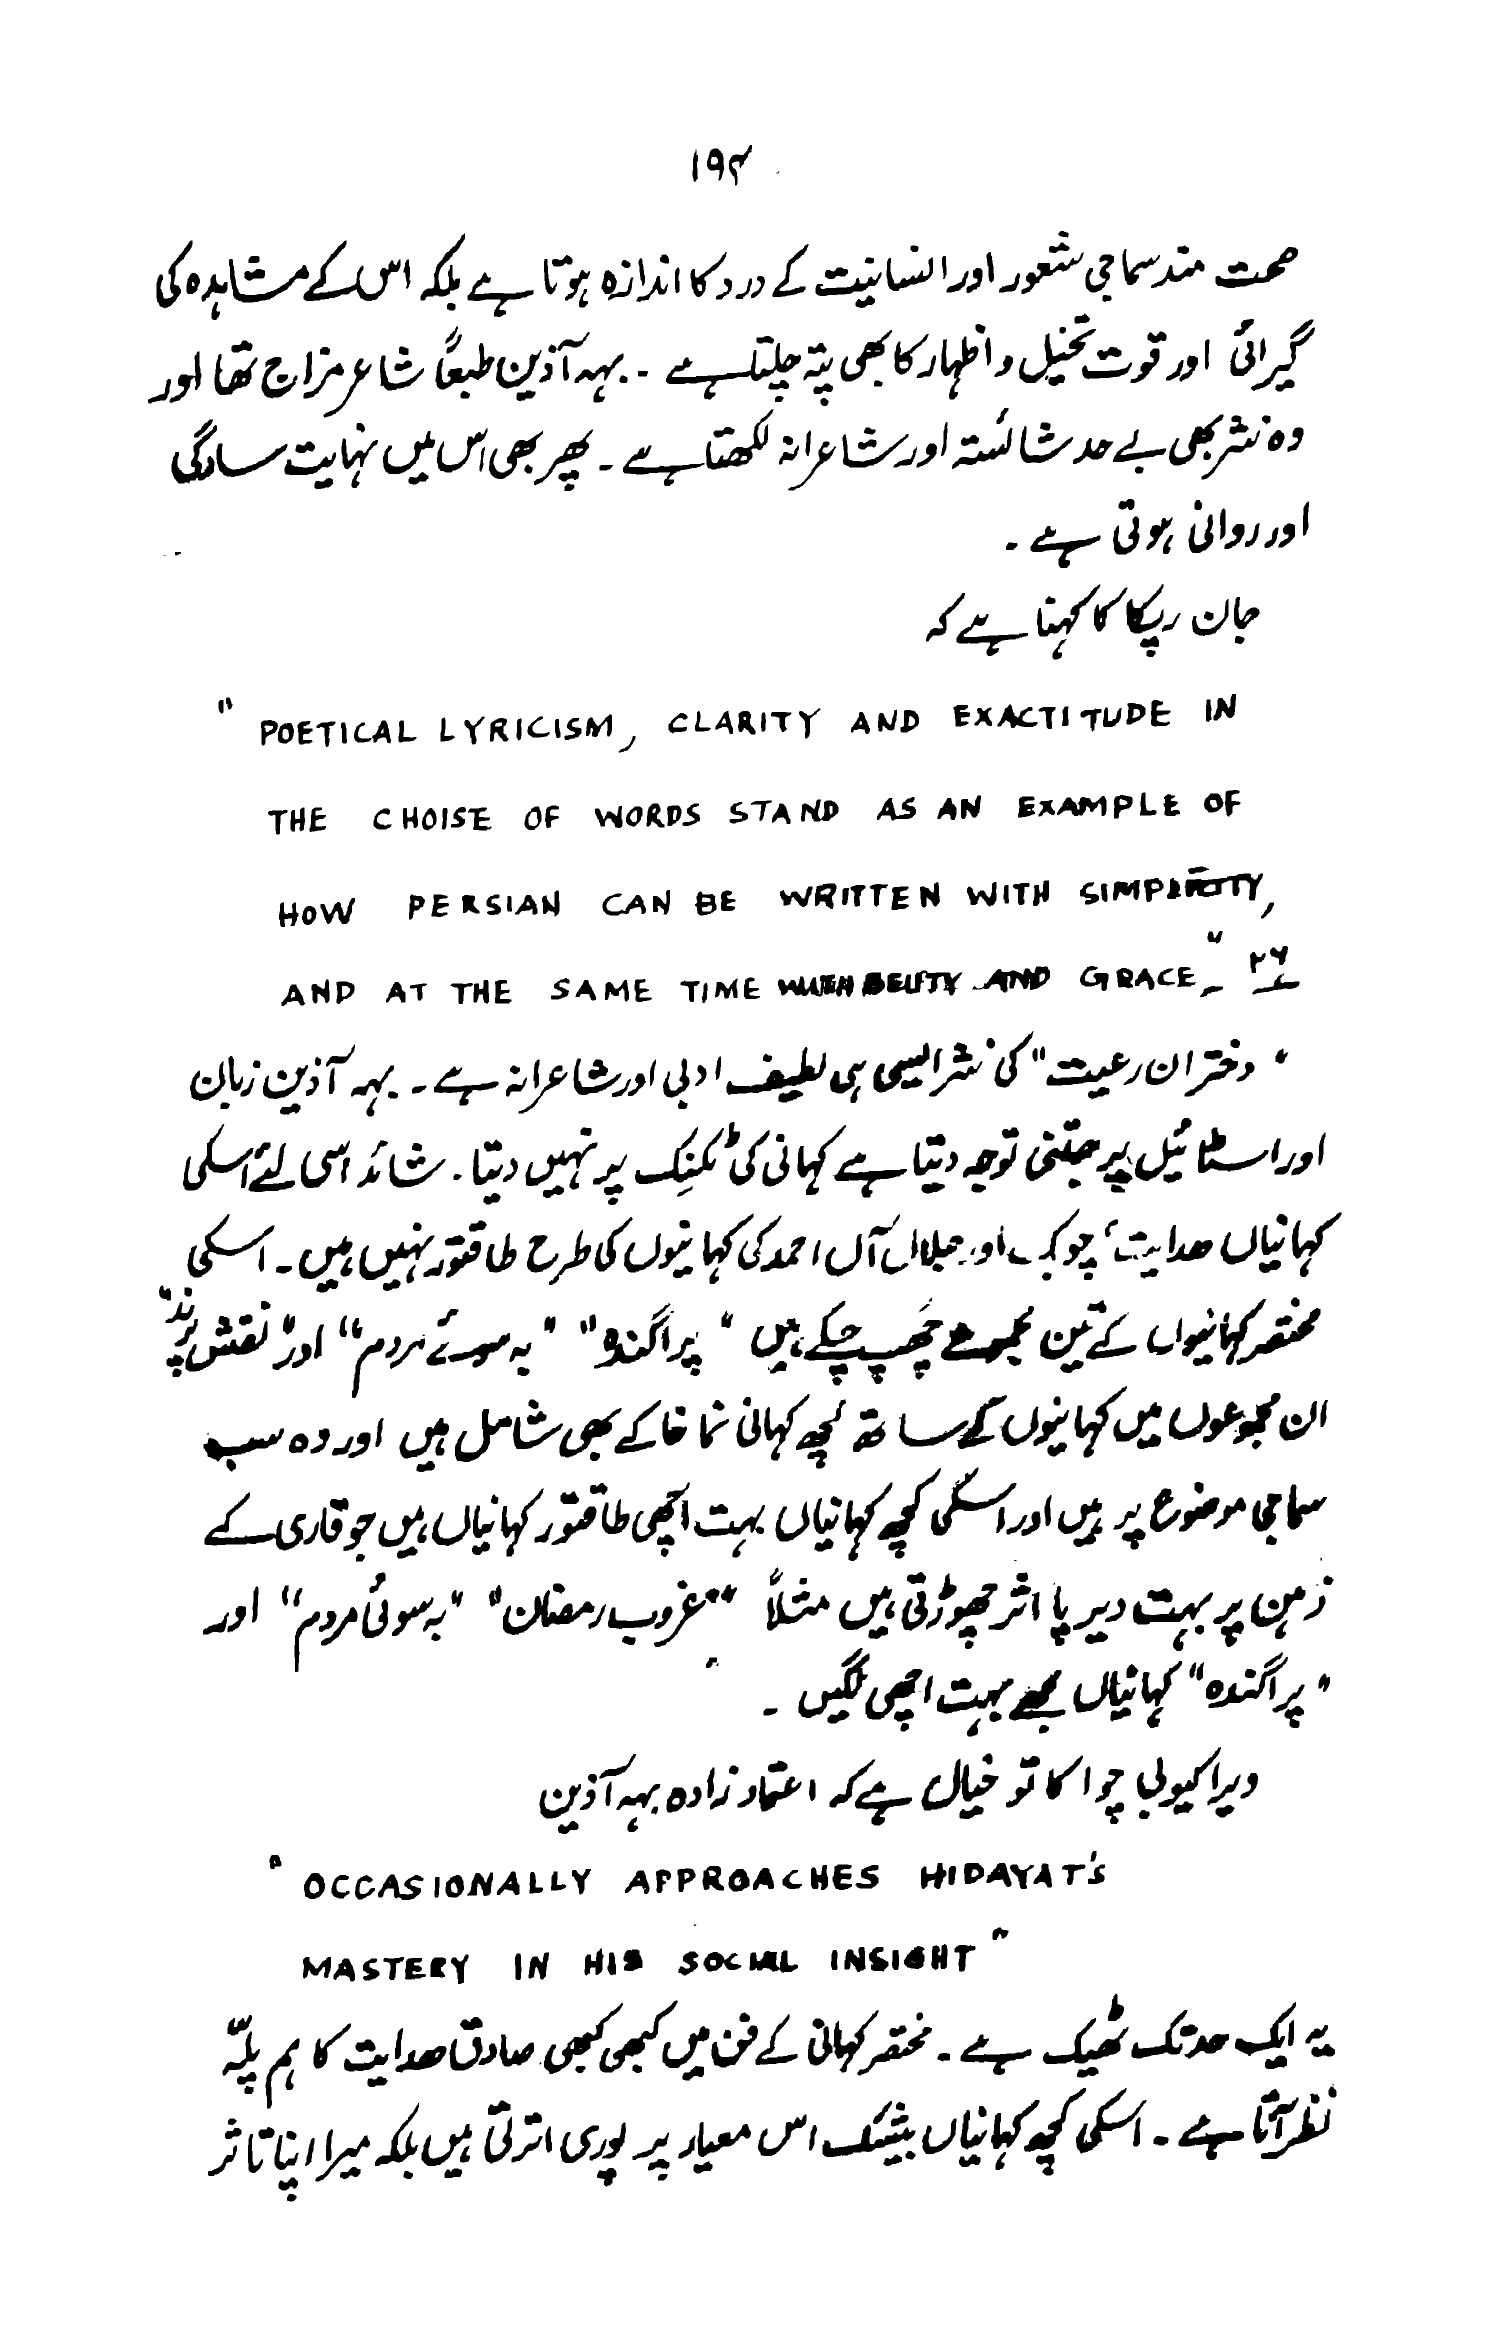 ۱۹۴
صحت مند سماجی شعور اور انسانیت کے درد کا اندازہ ہوتا ہے بلکہ اس کے مشاہدہ کی
گیرائی اور قوت تخیل و اظہار کا بھی پتہ چلتا ہے ۔ بہہ آذین طبعاً شاعر مزاج تھا اور
وہ نثر بھی بے حد شائستہ اور شاعرانہ لکھتا ہے ۔ پھر بھی اس میں نہایت سادگی
اور روانی ہوتی ہے ۔
جان ریپکا کا کہنا ہے کہ
" POETICAL LYRICISM, CLARITY AND EXACTITUDE IN
THE CHOISE OF WORDS STAND AS AN EXAMPLE OF
HOW PERSIAN CAN BE WRITTEN WITH SIMPLICITY,
AND AT THE SAME TIME WITH BEUTY AND GRACE" ۲۶
" دختران رعیت" کی نثر ایسی ہی لطیف ادبی اور شاعرانہ ہے ۔ بہہ آذین زبان
اور اسٹائیل پر جتنی توجہ دیتا ہے کہانی کی ٹکنِک پر نہیں دیتا ۔ شائد اسی لئے اسکی
کہانیاں ھدایت، چوبک اور جلال آل احمد کی کہانیوں کی طرح طاقتور نہیں ہیں ۔ اسکی
مختصر کہانیوں کے تین مجموعے چھپ چکے ہیں " پراگندہ" "بہ سوئے مردم" اور "نقش پرند"
ان مجموعوں میں کہانیوں کے ساتھ کچھ کہانی نما خاکے بھی شامل ہیں اور وہ سب
سماجی موضوع پر ہیں اور اسکی کچھ کہانیاں بہت اچھی طاقتور کہانیاں ہیں جو قاری کے
ذہن پر بہت دیر پا اثر چھوڑتی ہیں مثلاً "غروب رمضان" "بہ سوئی مردم" اور
"پراگندہ" کہانیاں مجھے بہت اچھی لگیں ۔
ویرا کیوبی چوا کا تو خیال ہے کہ اعتماد زادہ بہہ آذین
" OCCASIONALLY APPROACHES HIDAYAT'S
MASTERY IN HIS SOCIAL INSIGHT "
یہ ایک حد تک ٹھیک ہے ۔ مختصر کہانی کے فن میں کبھی کبھی صادق ھدایت کا ہم پلّہ
نظر آتا ہے ۔ اسکی کچھ کہانیاں بیشک اس معیار پر پوری اترتی ہیں بلکہ میرا اپنا تاثر